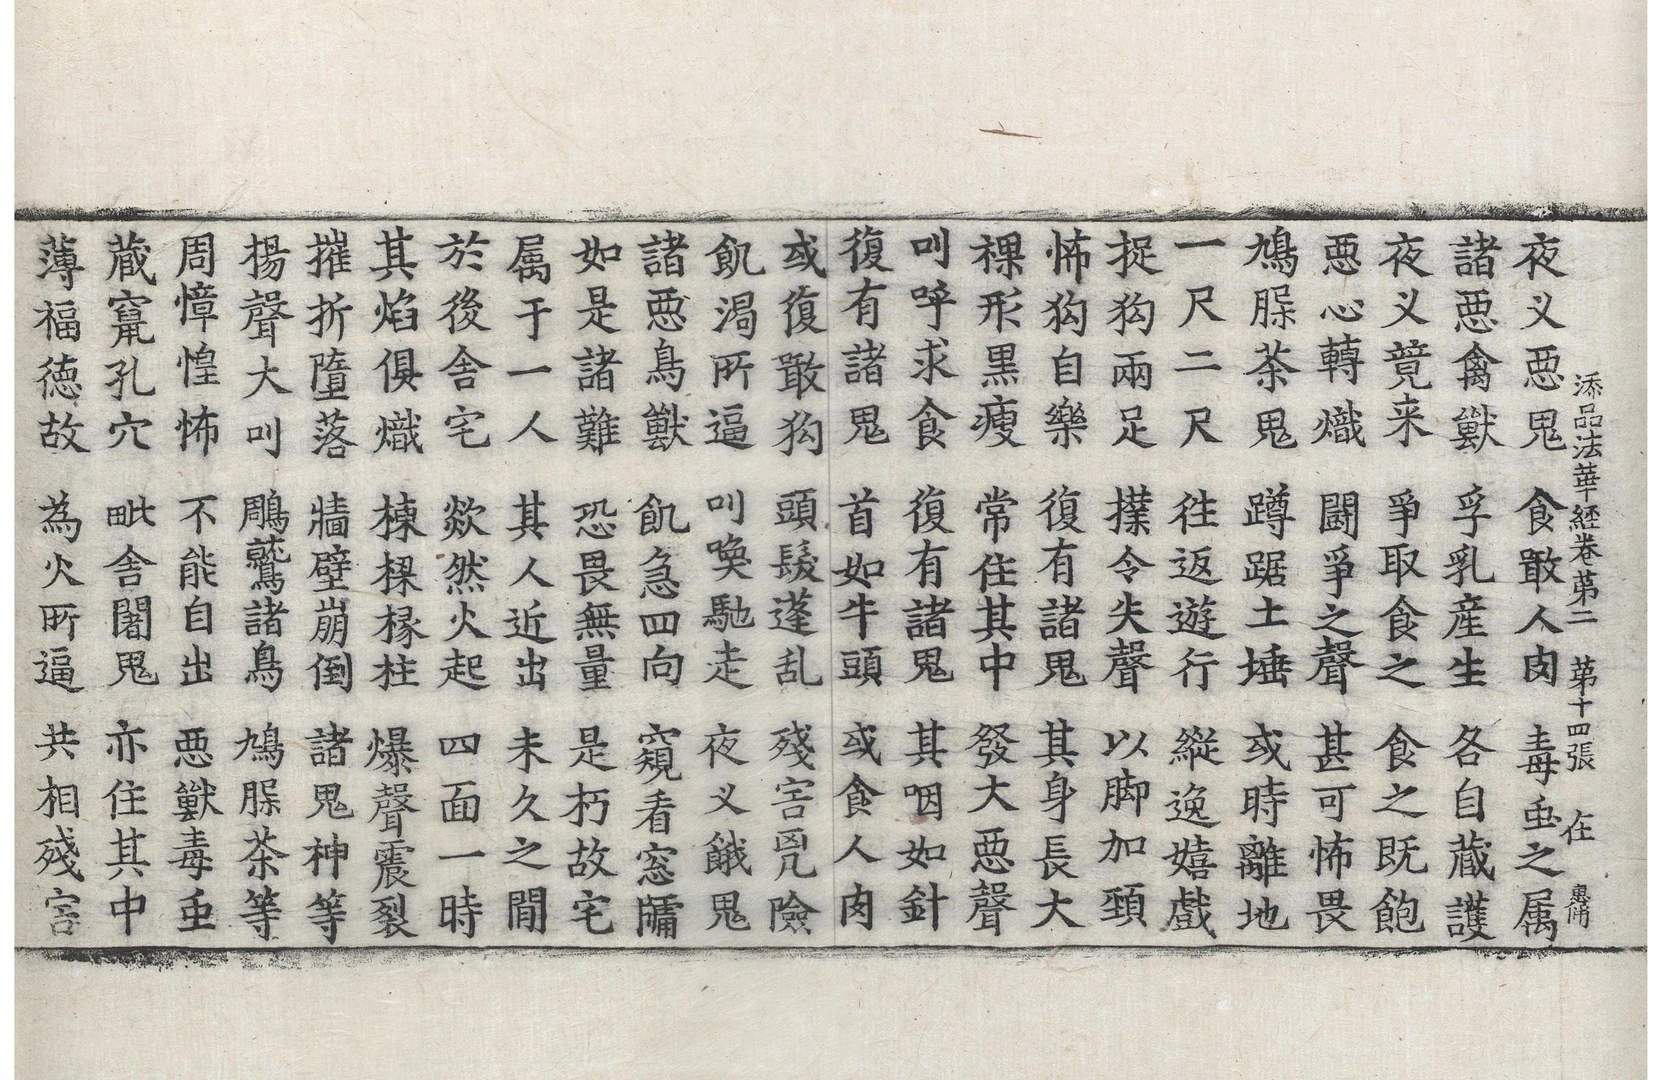 添品法華經卷苐二 苐十四張 在
夜叉悪鬼 食噉人肉 毒虫之属
諸悪禽獸 孚乳産生 各自藏護
夜叉竟来 爭取食之 食之既飽
悪心轉熾 鬪爭之聲 甚可怖畏
鳩脵荼鬼 蹲踞土埵 或時離地
一尺二尺 往返遊行 縱逸嬉戲
捉狗兩足 撲令失聲 以脚加頸
怖狗自樂 復有諸鬼 其身長大
裸形黒瘦 常住其中 發大悪聲
叫呼求食 復有諸鬼 其咽如針
復有諸鬼 首如牛頭 或食人肉
或復噉狗 頭髮蓬乱 殘害㐫險
飢渇所逼 叫喚馳走 夜叉餓鬼
諸悪鳥獸 飢急四向 窺看窓牖
如是諸難 恐畏無量 是朽故宅
属于一人 其人近出 未久之間
於後舍宅 欻然火起 四面一時
其焰俱熾 棟樑椽柱 爆聲震裂
摧折墮落 牆壁崩倒 諸鬼神等
揚聲大叫 鵰鷲諸鳥 鳩脵荼等
周慞惶怖 不能自出 悪獸毒虫
藏竄孔穴 毗舍闍鬼 亦住其中
薄福徳故 為火所逼 共相殘害